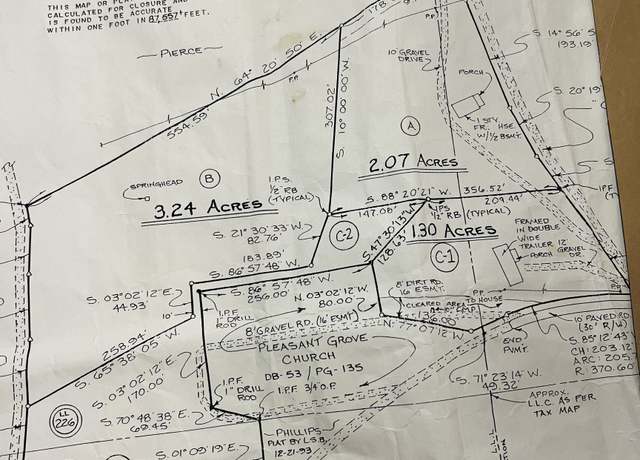 THIS MAP OR
CALCULATED FOR CLOSURE AND
IS FOUND TO BE ACCURATE
WITHIN ONE FOOT IN 87,657+ FEET.
PIERCE
N. 64° 20' 50" E.
554.59'
P.P.
178.
P.P.
307.02'
S. 10° 00' 00" W.
10' GRAVEL
DRIVE
PORCH
1 STY.
FR. HSE.
W/½ BSMT.
S. 14° 56'
193.19'
S. 20° 19'
A
2.07 ACRES
B
SPRINGHEAD
3.24 ACRES
I.P.S.
½" RB
(TYPICAL)
S. 88° 20' 21" W. 356.52'
147.08'
209.44'
IPS
½" RB (TYPICAL)
S. 21° 30' 33" W.
82.76'
C-2
S. 47° 30' 13" W.
128.63'
1.30 ACRES
C-1
FRAMED
IN DOUBLE
WIDE
TRAILER 12'
PORCH GRAVEL
DR.
183.89'
S. 86° 57' 48" W.
S. 86° 57' 48" W.
256.00'
N. 03° 02' 12" W.
80.00'
S. 03° 02' 12" E.
44.93'
10'
I.P.F.
DRILL
ROD
8' DIRT RD.
16' ESMT.
CLEARED AREA
P.P.
TO HOUSE
8' GRAVEL RD. (16' ESMT)
N. 77° 07' 12" W.
258.94'
S. 65° 38' 05" W.
PLEASANT GROVE
CHURCH
DB-53 / PG-135
END
PVMT.
10' PAVED RD.
(30' R/W)
S. 85° 12' 43"
CH: 203.12
ARC: 205.
R: 370.60
S. 03° 02' 12" E.
170.00'
I.P.F.
1" DRILL
ROD
I.P.F. 3/4 O.P.
S. 71° 23' 14" W.
49.32'
APPROX.
L.L.C. AS PER
TAX MAP
LL
226
S. 70° 48' 38" E.
69.45'
PHILLIPS
PLAT BY L.S.B.
12-21-93
S. 01° 09' 19" E.